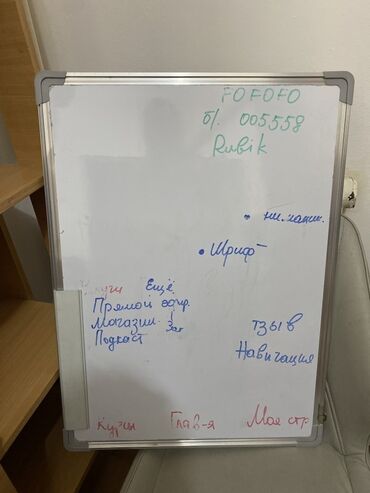 FOFOFO
б/. 005558
Rubik
• Шрифт
Ещё
Прямой эфир.
Магазин Зак
Подкаст
тзыв
Навигация
Глав-я
Моя стр.